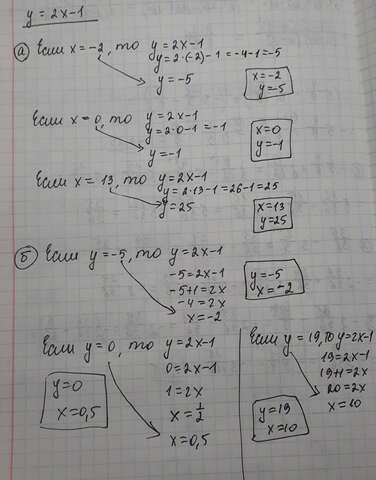 y = 2x-1
а) Если x = -2, то y = 2x-1
y = 2·(-2)-1 = -4-1 = -5
y = -5
x = -2
y = -5
Если x = 0, то y = 2x-1
y = 2·0-1 = -1
y = -1
x = 0
y = -1
Если x = 13, то y = 2x-1
y = 2·13-1 = 26-1 = 25
y = 25
x = 13
y = 25
б) Если y = -5, то y = 2x-1
-5 = 2x-1
-5+1 = 2x
-4 = 2x
x = -2
y = -5
x = -2
Если y = 0, то y = 2x-1
0 = 2x-1
1 = 2x
x = 1/2
x = 0,5
y = 0
x = 0,5
Если y = 19, то y = 2x-1
19 = 2x-1
19+1 = 2x
20 = 2x
x = 10
y = 19
x = 10